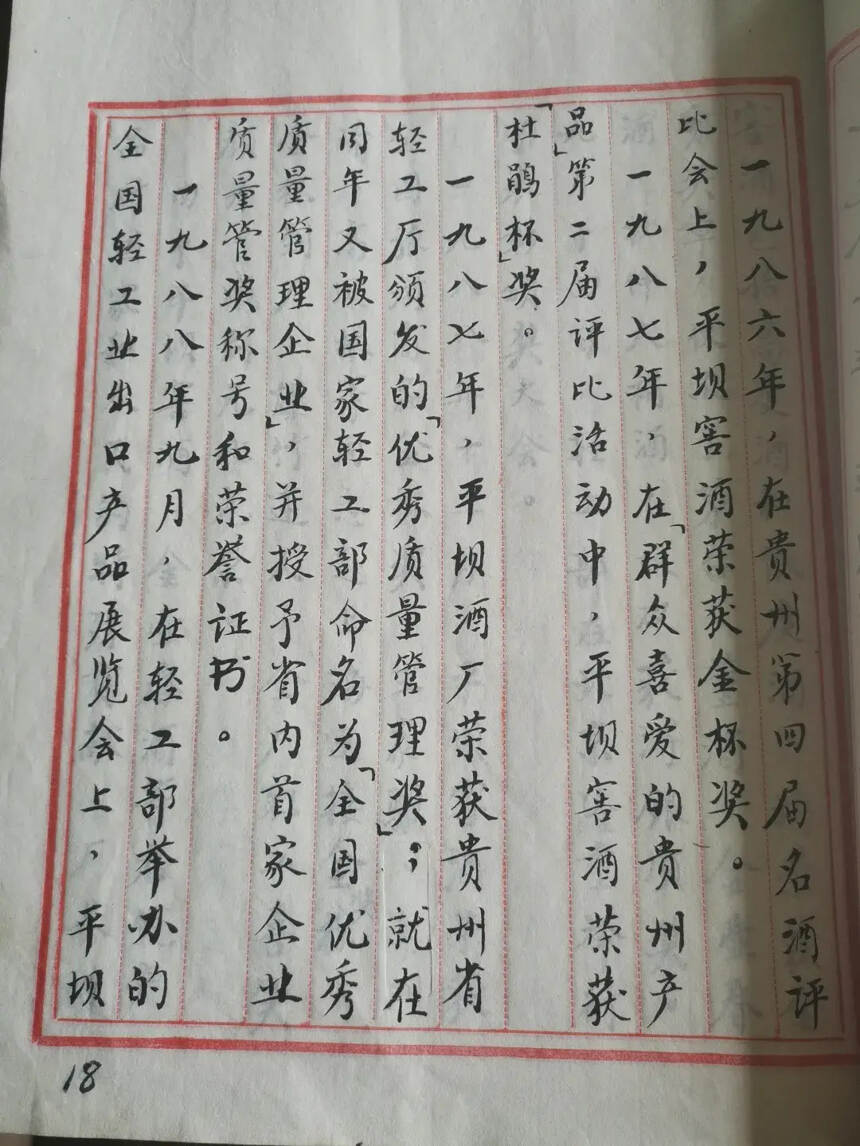 一九八六年，在贵州第四届名酒评
比会上，平坝窖酒荣获金杯奖。
一九八七年，在「群众喜爱的贵州产
品」第二届评比活动中，平坝窖酒荣获
「杜鹃杯」奖。
一九八七年，平坝酒厂荣获贵州省
轻工厅颁发的「优秀质量管理奖」；就在
同年又被国家轻工部命名为「全国优秀
质量管理企业」，并授予省内首家企业
质量管奖称号和荣誉证书。
一九八八年九月，在轻工部举办的
全国轻工业出口产品展览会上，平坝
18